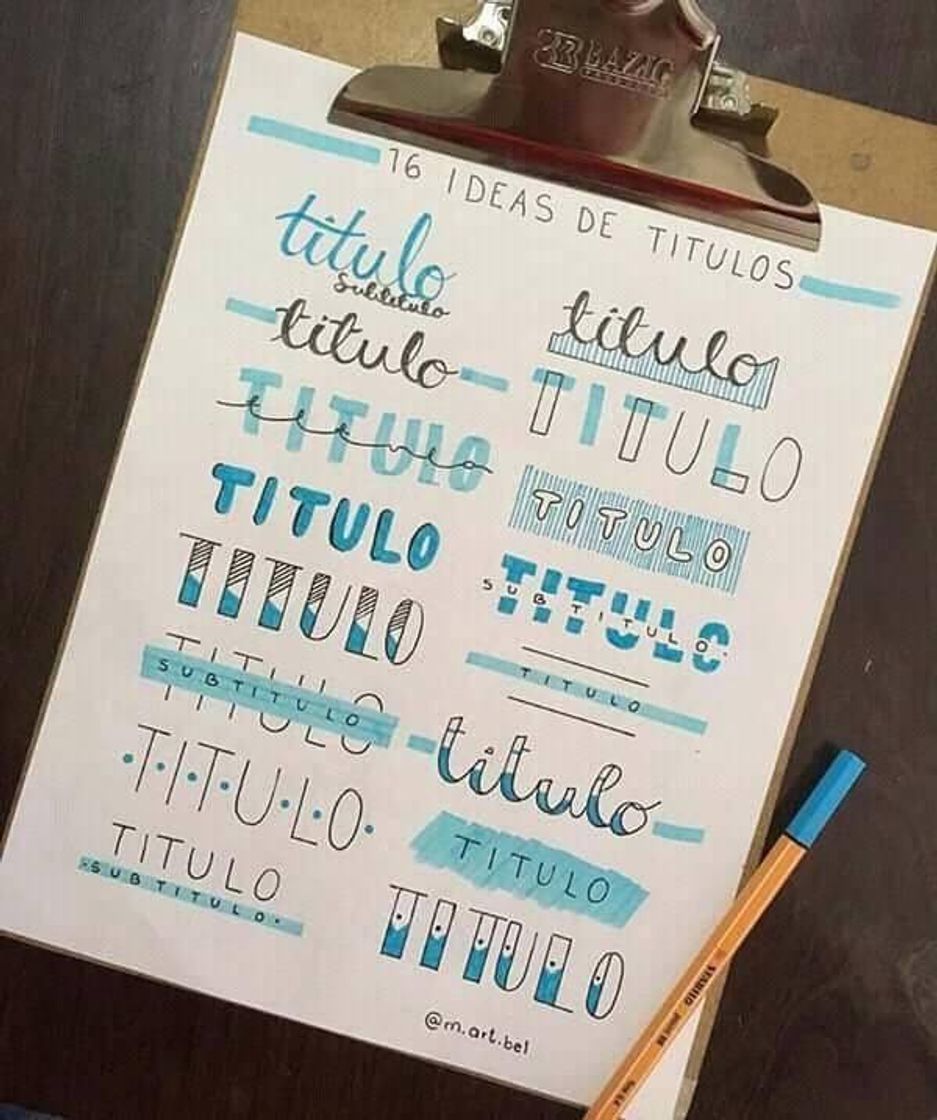 BAZIC
16 IDEAS DE TITULOS
titulo
Subtitulo
titulo
TITULO
titulo
TITULO
TITULO
TITULO
SUBTITULO
TITULO
TITULO
·SUBTITULO·
titulo
TITULO
TITULO
TITULO
SUBTITULO
TITULO
titulo
TITULO
TITULO
@m.art.bel
STABILO